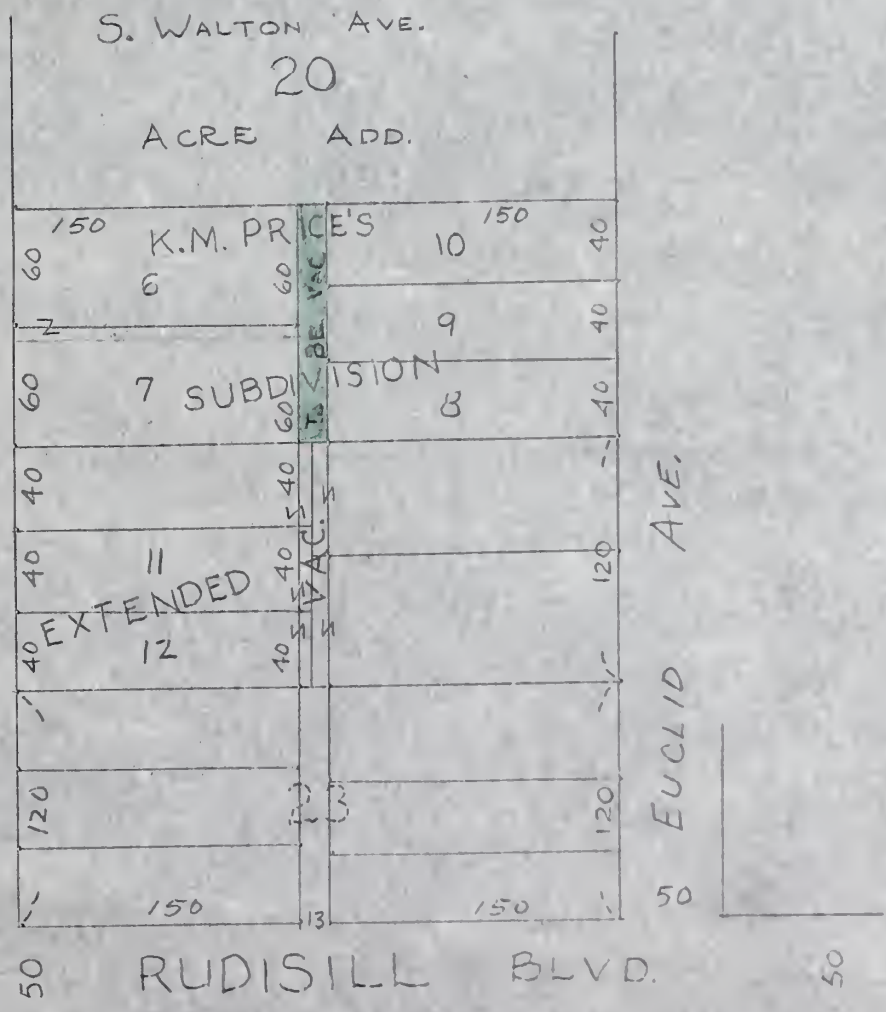 S. WALTON AVE.
20
ACRE ADD.
150 K.M. PRICE'S 150
60 6 60 10 40
TO BE VAC
Z
9 40
60 7 SUBDIVISION 60 8 40
40 40
VAC.
40 11 40 120
EXTENDED
40 12 40
EUCLID AVE.
120 120
150 13 150 50
50 RUDISILL BLVD. 50